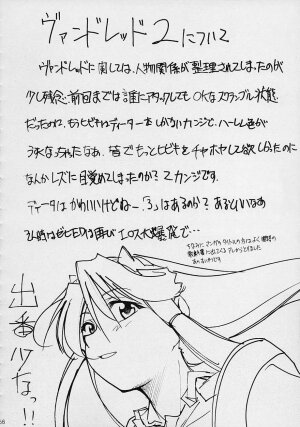 ヴァンドレッド2について
ヴァンドレッドに関しては、人物関係が整理されてしまったのが
少し残念、前回までは誰にアタックしてもOKなスクランブル状態
だったのに、もうヒビキはディータを しかないカンジで、ハーレム色が
うすくなっちゃたなぁ、皆でもっとヒビキをチャホヤして欲しかったのに
なんかレズに目覚めてしまったのか?ってカンジです。
ディータはかわいいけどねー「3」はあるのか?あるといいなぁ
その時はぜひEDは再びエロス大爆発で…
ちなみに
出番少なっ!!